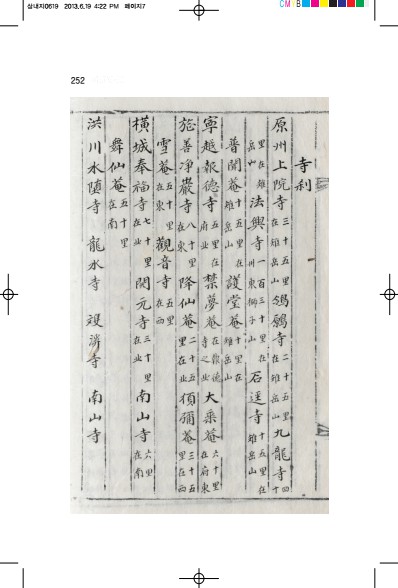 삼내지0619 2013.6.19 4:22 PM 페이지7
CM B
252
寺刹
原州上院寺 三十五里在雉岳山 鴟鶚寺 二十五里在雉岳山 九龍寺 四十
里在雉岳山 法興寺 一百三十里在州東獅子山 石逕寺 十五里在雉岳山
普聞菴 雉岳山 護堂菴 十里在雉岳山
寧越報德寺 五里在府北 禁夢菴 在報德寺之北 大乘菴 六十里在府東
旌善淨巖寺 八十里在東 降仙菴 二十五里在北 須彌菴 三十五里在西
雪菴 五十里在東 觀音寺 五里在西
橫城奉福寺 七十里在北 開元寺 三十里在北 南山寺 六里在南
舞仙菴 五十里在南
洪川水墮寺 龍水寺 雙濟寺 南山寺